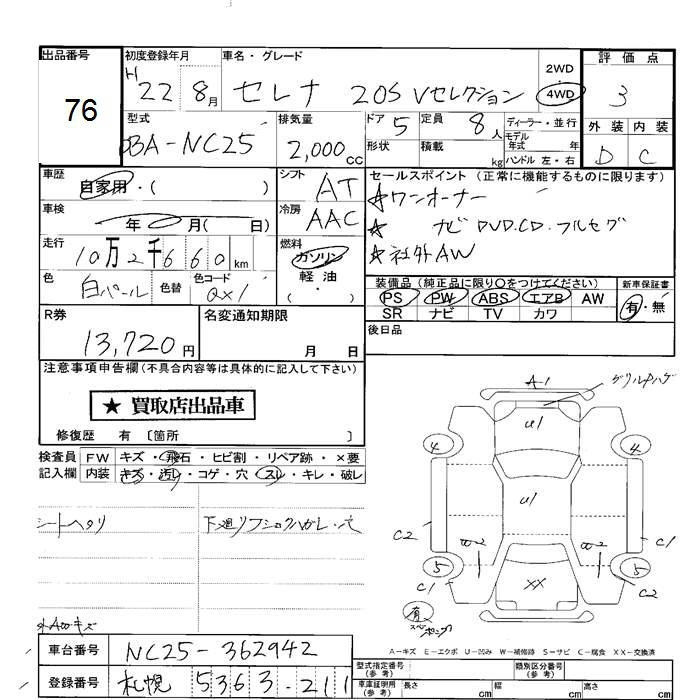 出品番号
76
初度登録年月
H 22 8月
車名・グレード
セレナ 20S Vセレクション
2WD
4WD
評価点
3
外装 内装
D C
型式
DBA-NC25
排気量
2,000cc
ドア 5
定員 8人
形状
積載 kg
ディーラー・並行
モデル年式 年
ハンドル 左・右
車歴
自家用・( )
シフト AT
冷房 AAC
セールスポイント (正常に機能するものに限ります)
★ワンオーナー
★ ナビ DVD.CD.フルセグ
★社外AW
車検
年 月( 日)
走行
10万2千660km
燃料
ガソリン
軽油
( ・ )
色
白パール
色替
色コード
QX1
装備品 (純正品に限り○をつけてください)
PS PW ABS エアB AW
SR ナビ TV カワ
新車保証書
有・無
R券
13,720円
名変通知期限
月 日
後日品
注意事項申告欄(不具合内容等は具体的に記入して下さい)
★ 買取店出品車
修復歴 有 〔箇所 〕
検査員記入欄
FW キズ・飛石・ヒビ割・リペア跡・×要
内装 キズ・汚レ・コゲ・穴・スレ・キレ・破レ
シートヘタリ
下廻りフショクハガレ・穴
外AWキズ
A1
U1
4 4
U1
C2 C1
5 5
C1 C2
XX
有
A-キズ E-エクボ U-凹み W-補修跡 S-サビ C-腐食 XX-交換済
車台番号
NC25-362942
登録番号
札幌 5363-211
型式指定番号(参考)
類別区分番号(参考)
車庫証明用(参考)
長さ cm 幅 cm 高さ cm